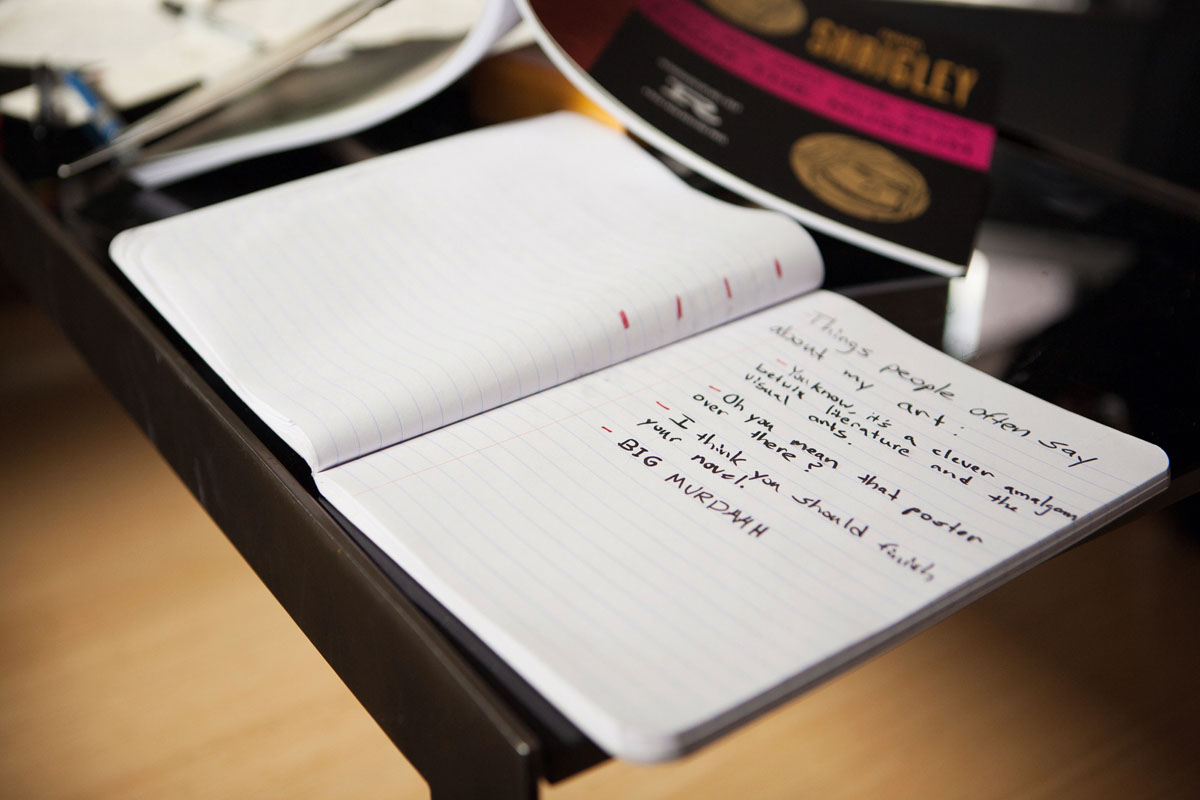 SHRIGLEY
R
Things people often say
about my art:
- You know, it's a clever amalgam
betwix literature and the
visual arts.
- Oh you mean that poster
over there?
- I think you should finish
your novel.
- BIG MURDAHH